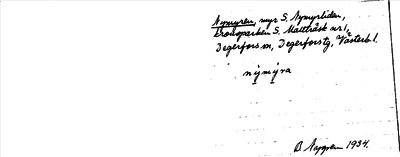 Nymyren, myr S. Nymyrliden,
Kronoparken S. Mattträsk nr 1,
Degerfors sn, Degerfors tg, Västerb. l.
nymyra
B. Nygren 1934.